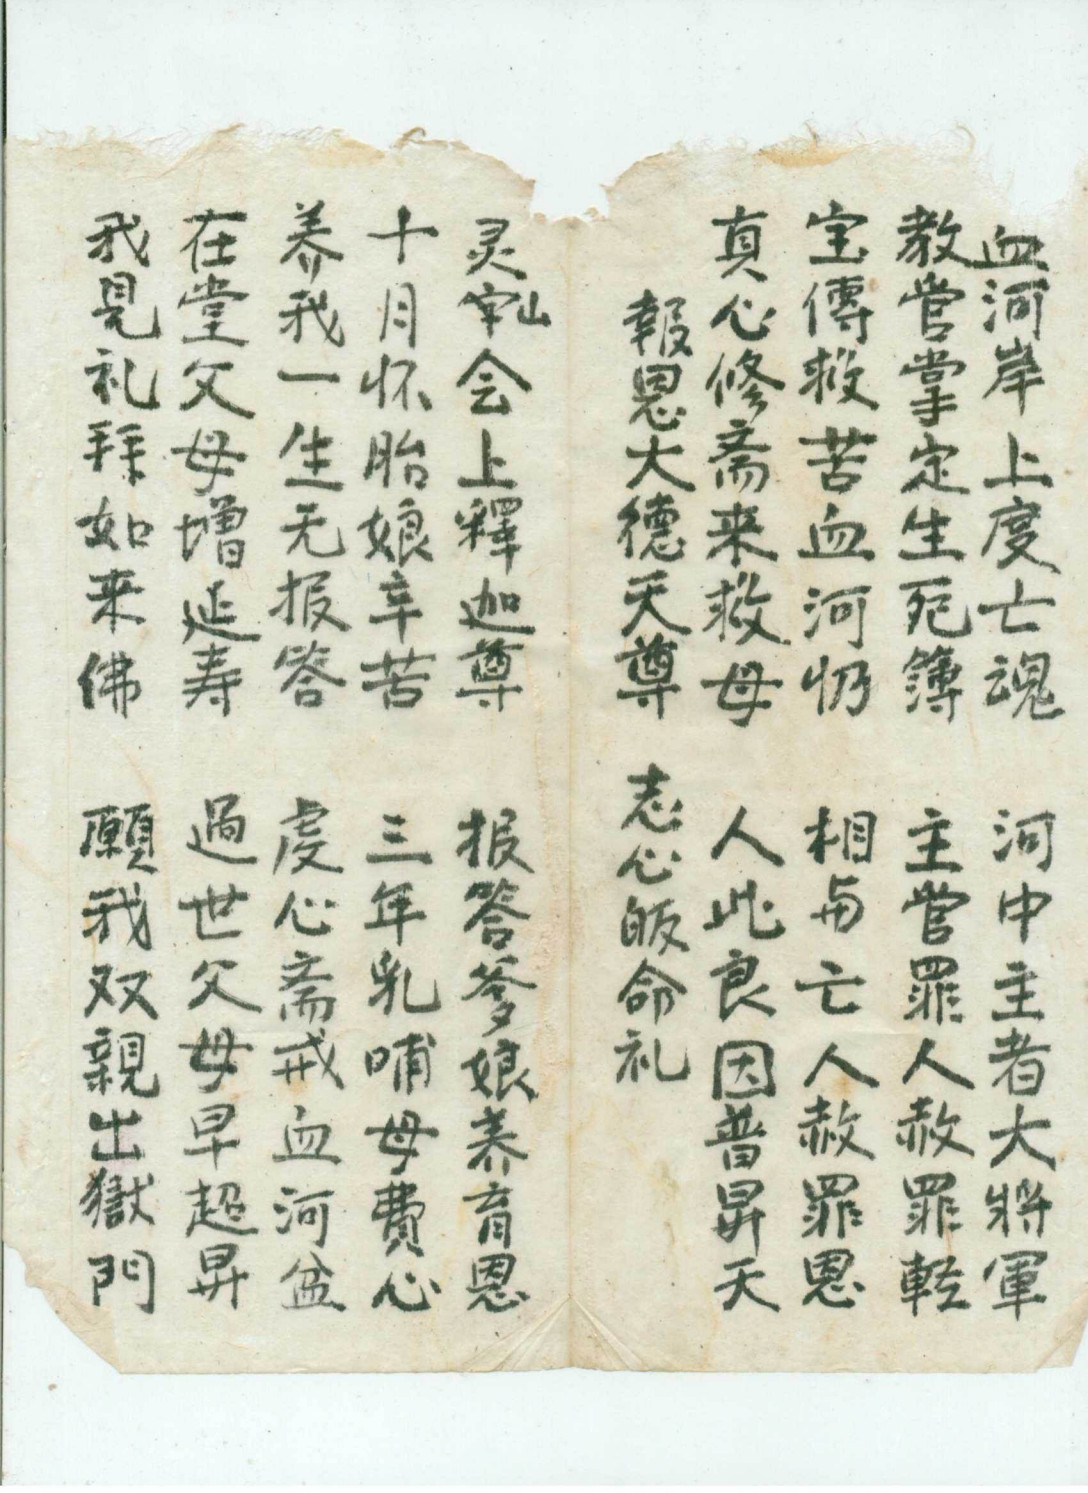 血河岸上度亡魂 河中主者大將軍
教啻掌定生死簿 主管罪人赦罪輕
宝傳救苦血河仍 相与亡人赦罪恩
真心修斋来救母 人此良因普昇天
報恩大德天尊 志心皈命礼
灵山会上釋迦尊 报答爹娘养育恩
十月怀胎娘辛苦 三年乳哺母費心
养我一生无报答 虔心斋戒血河盆
在堂父母增延寿 過世父母早超昇
我見礼拜如来佛 願我双親出獄門